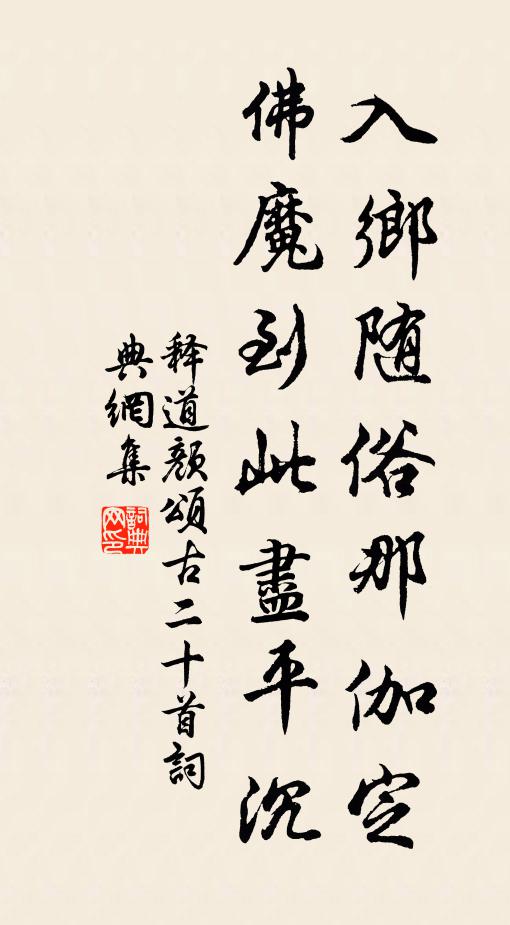 入鄉随俗那伽定
佛魔到此盡平沉
释道颜頌古二十首詞
典網集
詞典
网印